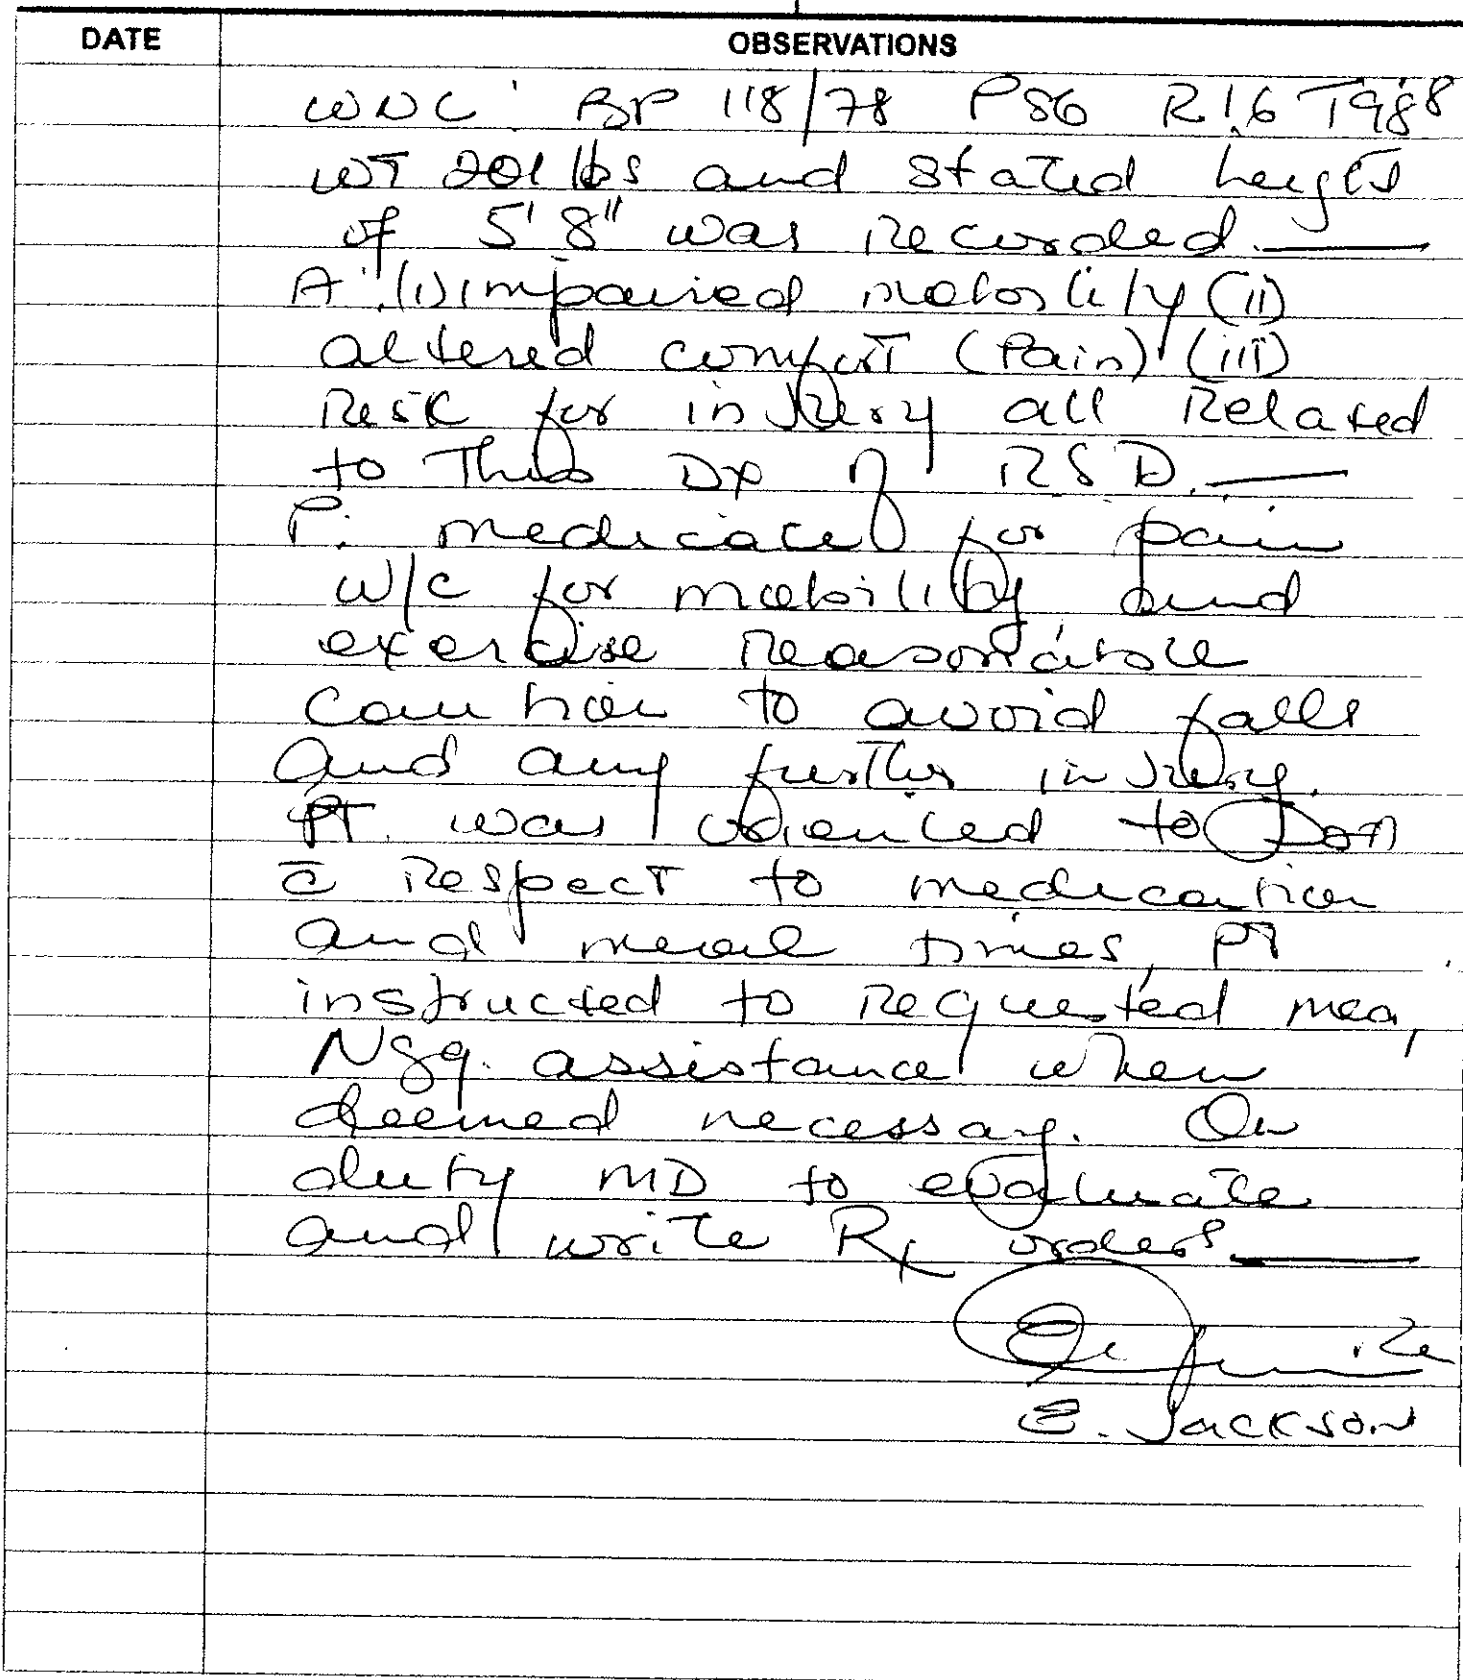 DATE OBSERVATIONS
WNL: BP 118/78 P86 R16 T98⁸
WT 201 lbs and stated height
of 5'8" was recorded.
A: (i) impaired mobility (ii)
altered comfort (Pain) (iii)
Risk for injury all Related
to This Dx of RSD.
P: medicated for pain
W/C for mobility and
exercise reasonable
caution to avoid falls
and any further injury.
PT. was oriented to
c̄ Respect to medication
and meal times, PT
instructed to Requested med,
Nsg. assistance when
deemed necessary. On
duty MD to evaluate
and write Rx orders
E. JACKSON